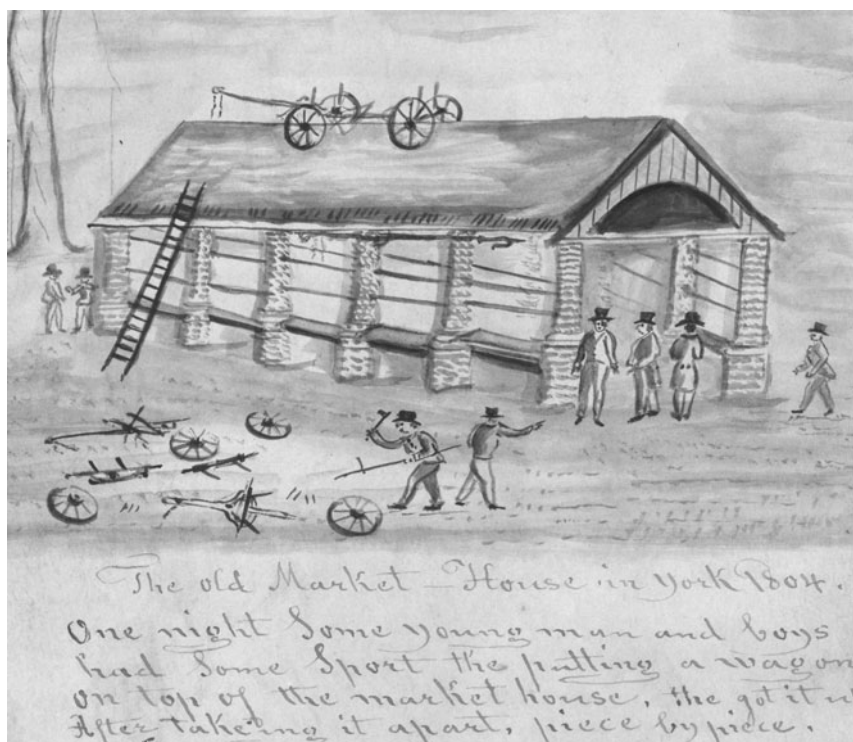 The old Market - House in York 1804.
One night Some young man and boys
had Some Sport the putting a wagon
on top of the market house, the got it
After takeing it apart, piece by piece.